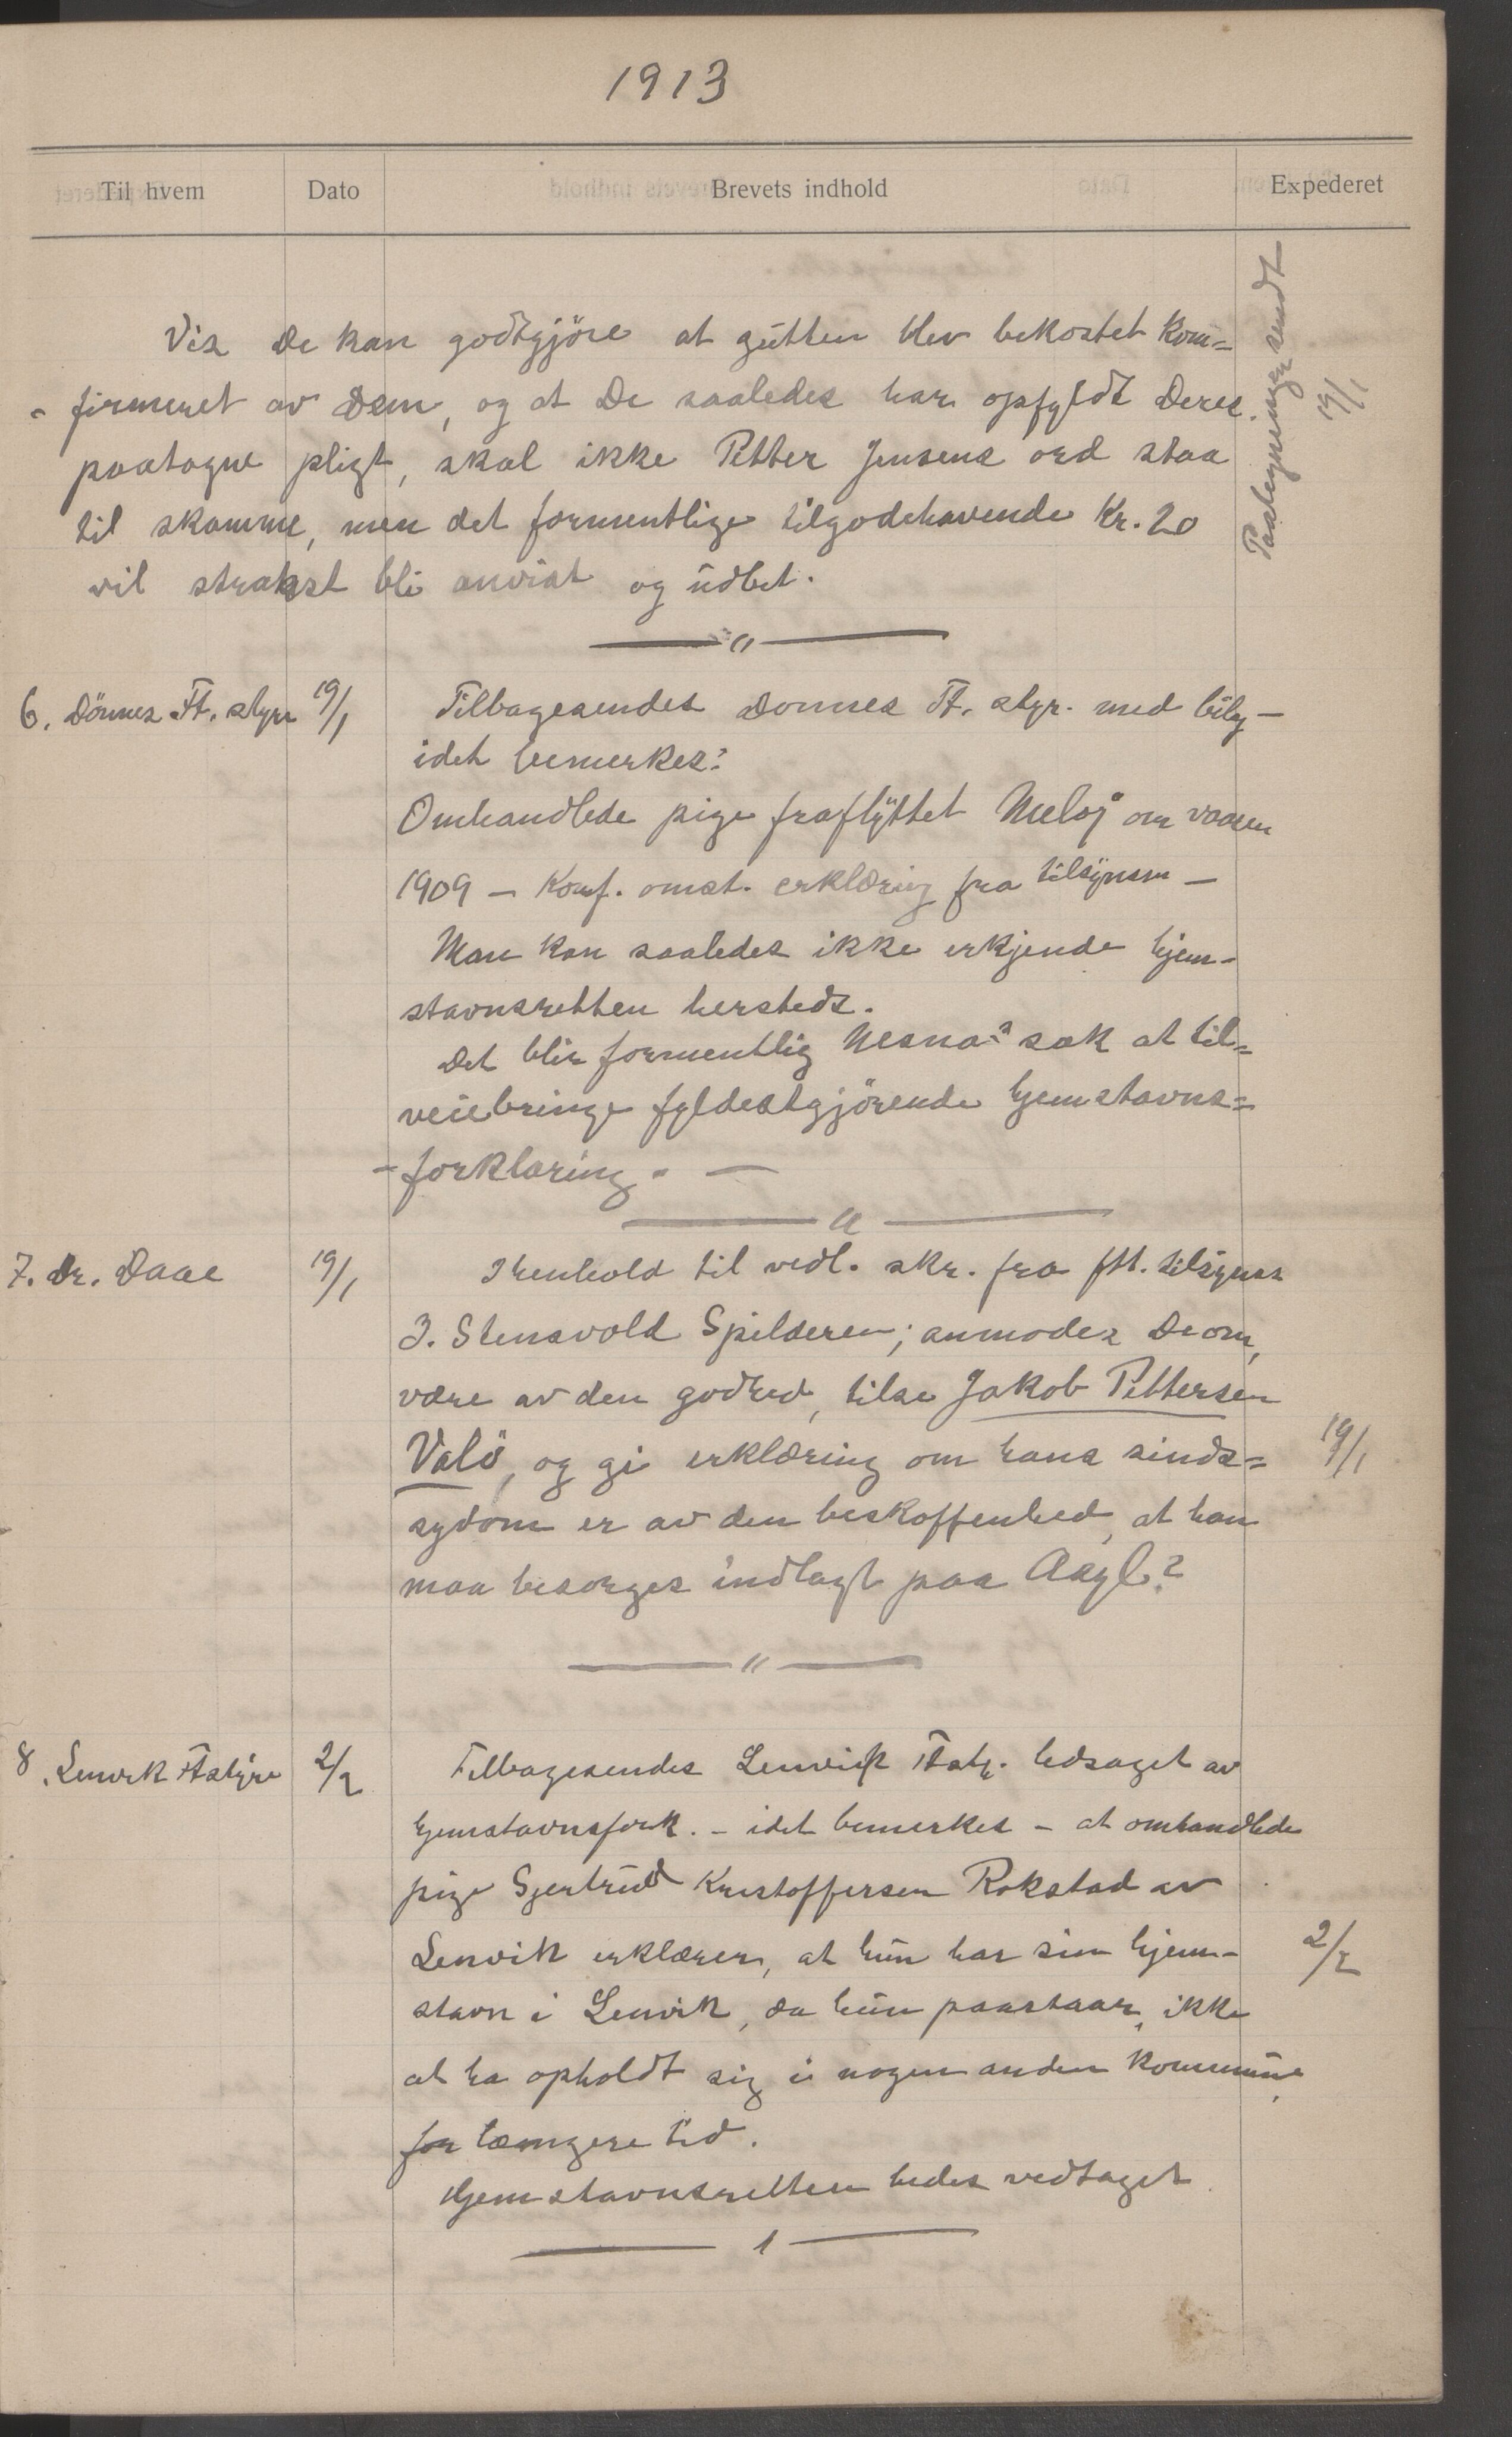 1913
Til hvem Dato Brevets indhold Expederet
Vis De kan godtgjöre at gutten blev bekostet kon=
= firmeret av Dem, og at De saaledes har opfyldt Deres
paatagne pligt, skal ikke Petter Jensens ord staa
til skamme, men det formentlige tilgodehavende Kr. 20
vil strakst bli anvist og udbet.
Paategninger sendt
19/1
6. Dönnes Ft. styre 19/1 Tilbagesendes Dönnes Ft. styr. med bilg -
idet bemerkes:
Omhandlede pige fraflyttet Melöj om vaaren
1909 - Konf. omst. erklæring fra tilsynsm -
Man kan saaledes ikke erkjende hjem-
stavnsretten hersteds.
Det blir formentlig Nesnas sak at til=
veiebringe fyldestgjörende hjemstavns=
- forklaring. -
7. Dr. Daae 19/1 I henhold til vedl. skr. fra ftt. tilsynsm
J. Stensvold Spilderen; anmodes De om,
være av den godhed, tilse Jakob Pettersen
Valö, og gi erklæring om hans sinds=
sydom er av den beskaffenhed, at han
maa besörges indlagt paa Asyl?
19/1
8. Lenvik Ftstyre 2/2 Tilbagesendes Lenvik Ftsty. ledsaget av
hjemstavnsfork. - idet bemerkes - at omhandlede
pige Gjertrud Kristoffersen Rokstad av
Lenvik erklærer, at hun har sin hjem-
stavn i Lenvik, da hun paastaar, ikke
at ha opholdt sig i nogen anden kommune,
for længere tid.
Hjemstavnsretten bedes vedtaget
2/2